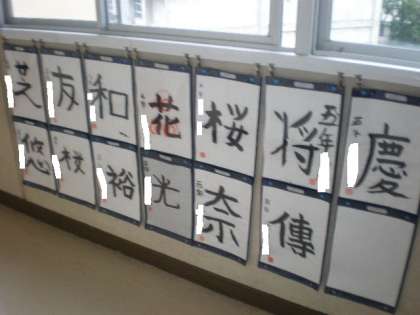 慶
将
五年
桜
花
和
友
傳
奈
光
裕
悠